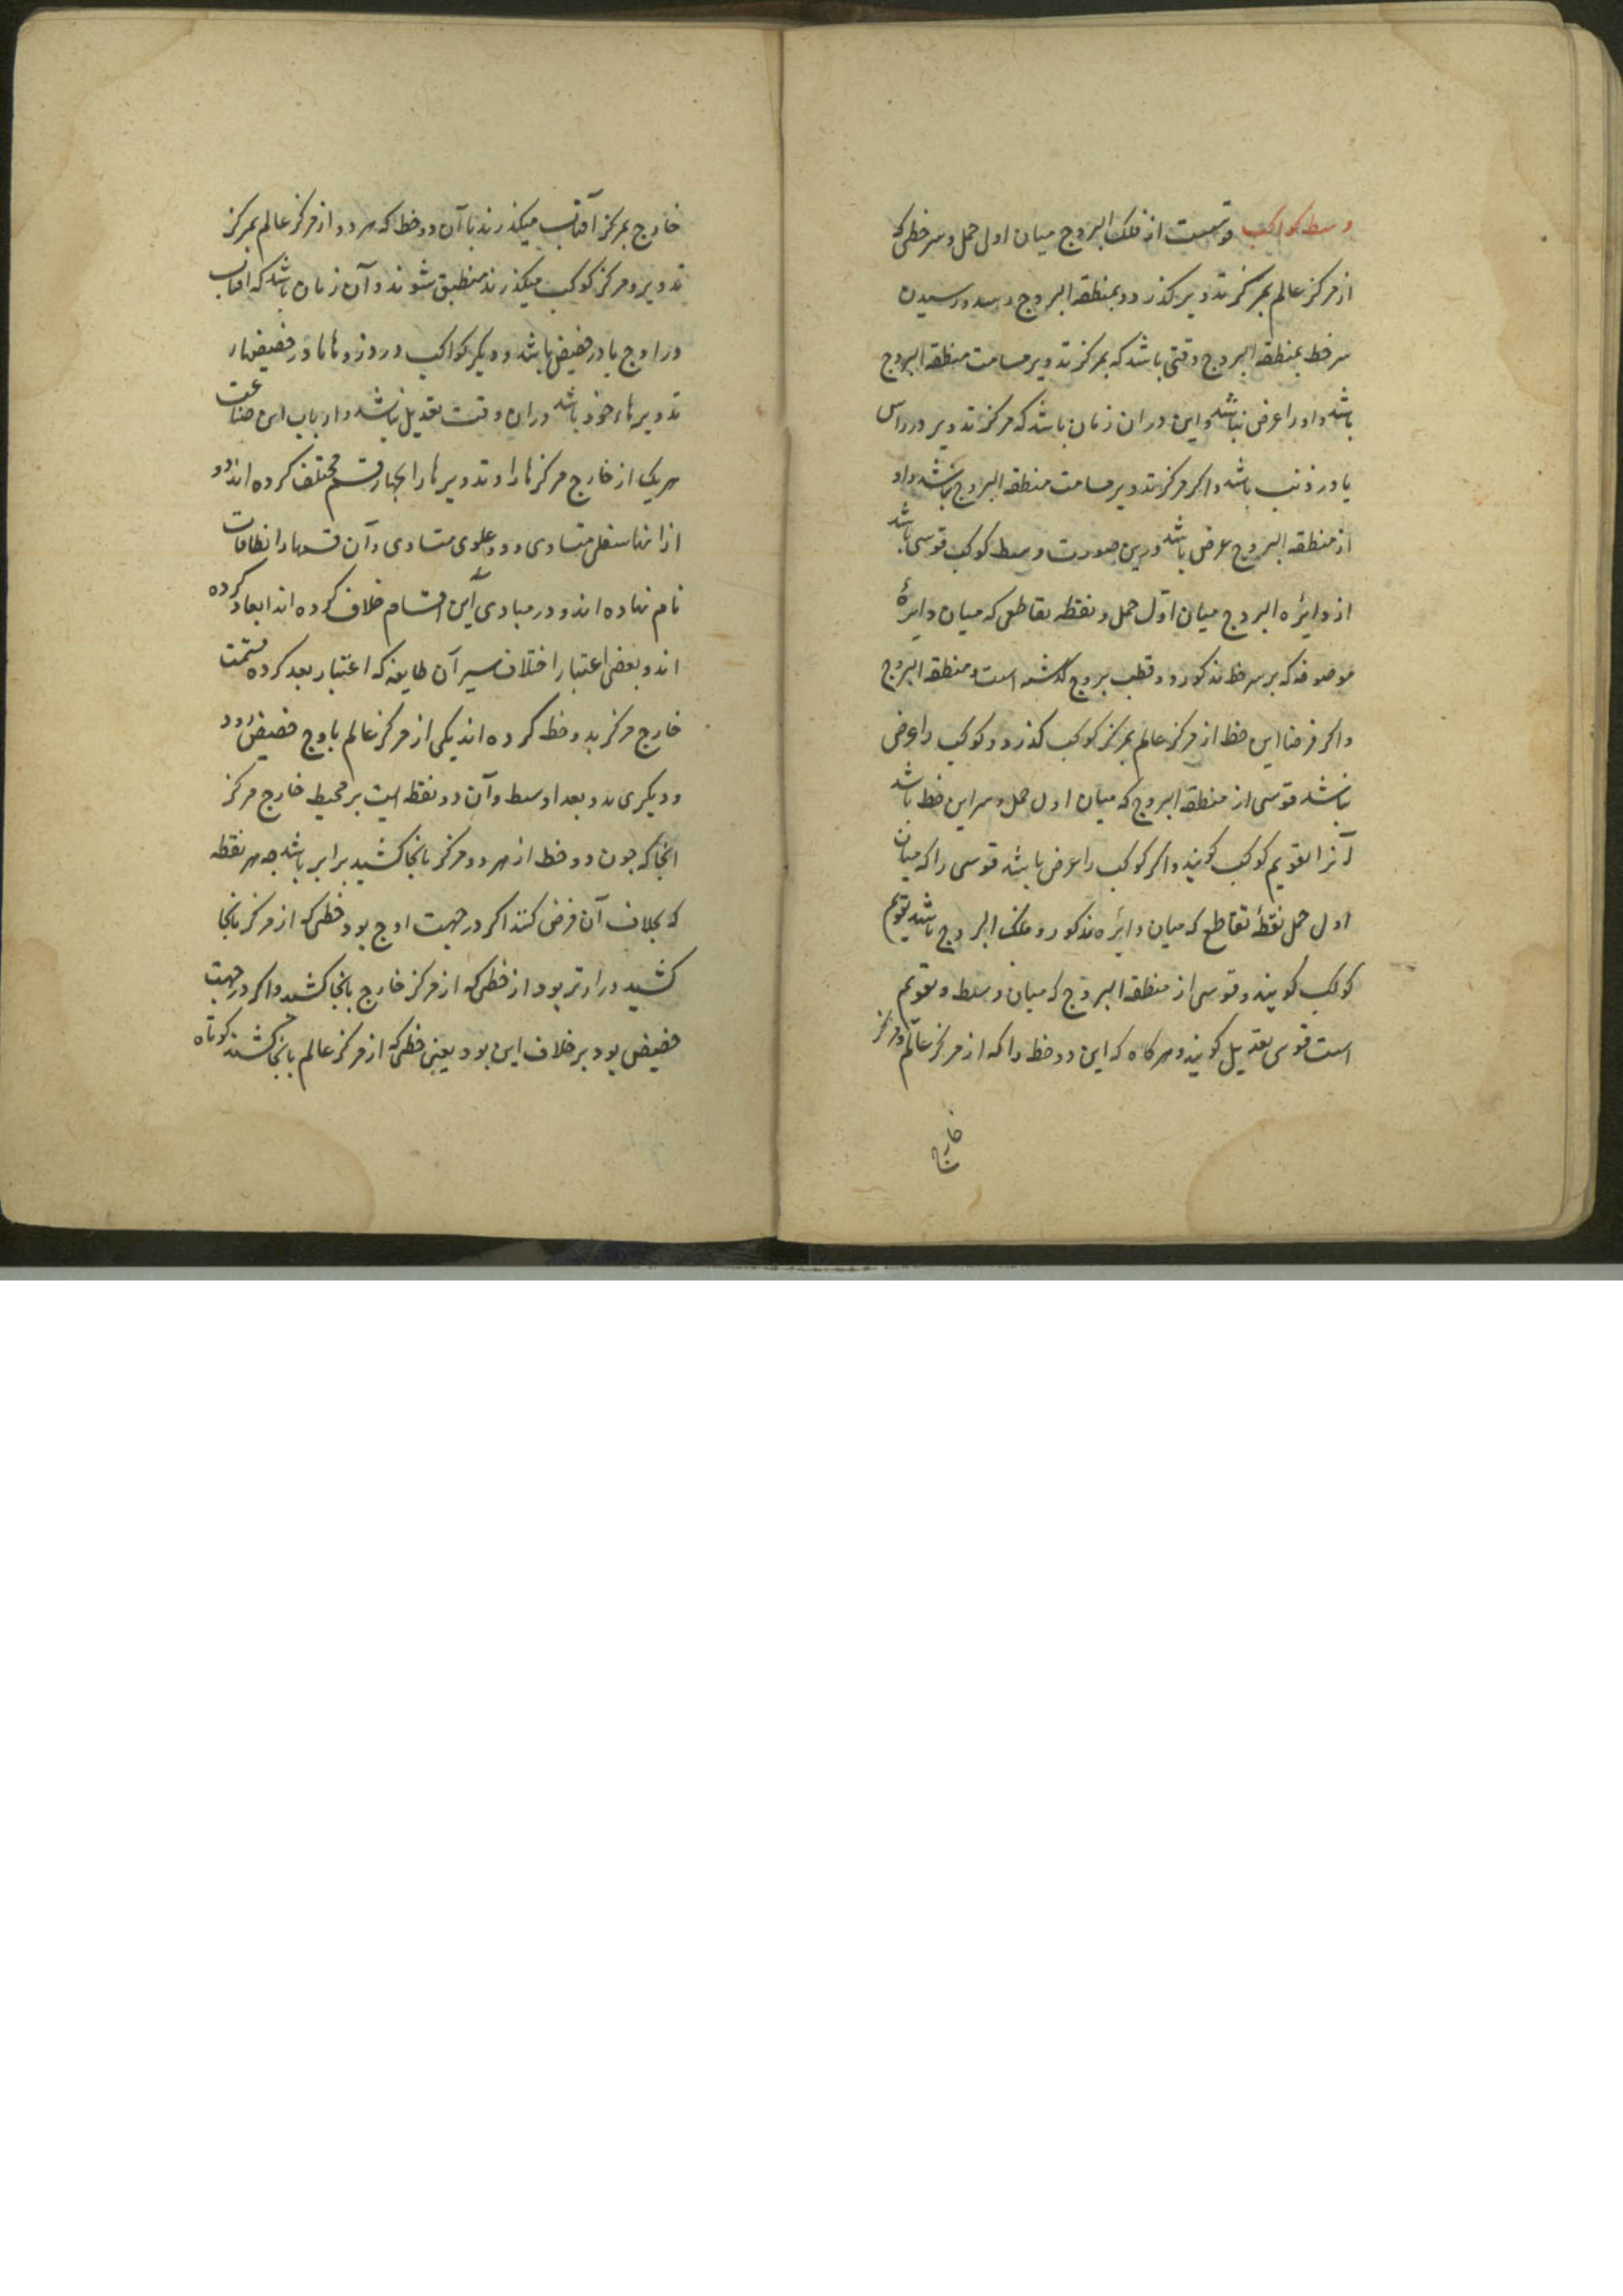 وسط کواکب قوسیست از فلک البروج میان اول حمل و سر خطی که
از مرکز عالم بمرکز تدویر کذرد و بمنطقه البروج رسد و رسیدن
سر خط بمنطقه البروج وقتی باشد که بمرکز تدویر مسامت منطقه البروج
باشد و او را عرض نباشد و این در ان زمان باشد که مرکز تدویر در راس
یا در ذنب باشد و اکر مرکز تدویر مسامت منطقه البروج نباشد و او
از منطقه البروج عرض باشد درین صورت وسط کوکب قوسی باشد
از دایره البروج میان اوّل حمل و نقطه تقاطعی که میان دایرهٔ
موصوفه که بر سر خط مذکور و دو قطب بروج کذشته است و منطقه البروج
و اکر فرضا این خط از مرکز عالم بمرکز کوکب کذرد و کوکب را عرض
نباشد قوسی از منطقه البروج که میان اول حمل و سر این خط باشد
آنرا تقویم کوکب کویند و اکر کوکب را عرض باشد قوسی را که میان
اول حمل نقطهٔ تقاطع که میان دایره مذکور و فلک البروج باشد تقویم
کوکب کویند و قوسی از منطقه البروج که میان وسط و تقویم
است قوس تعدیل کویند و هرکاه که این دو خط را که از مرکز عالم و مرکز
خارج
خارج بمرکز آفتاب میکذرند با آن دو خط که هر دو از مرکز عالم بمرکز
تدویر و مرکز کوکب میکذرند منطبق شوند و آن زمان باشد که افتاب
در اوج یا در حضیض باشد و دیکر کواکب در ذروها یا در حضیضهاء
تدویرهاء خود باشد در ان وقت تعدیل نباشد و ارباب این صناعت
هر یک از خارج مرکزها را و تدویرها را بچهار قسم مختلف کرده اند دو
از انها سفلی متساوی و دو علوی متساوی و آن قسمها را نطاقات
نام نهاده اند و در مبادی این اقسام خلاف کرده اند ابعاد کرده
اند و بعضی اعتبار اختلاف سیر آن طایفه که اعتبار بعد کرده قسمت
خارج مرکز بدو خط کرده اند یکی از مرکز عالم باوج حضیض رود
و دیکری بدو بعد اوسط و آن دو نقطه است بر محیط خارج مرکز
انجا که چون دو خط از هر دو مرکز بانجا کشید برابر باشد چه هر نقطه
که بخلاف آن فرض کنند اکر در جهت اوج بود خطی که از مرکز بانجا
کشید درازتر بود از خطی که از مرکز خارج بانجا کشید و اکر در جهت
حضیض بود بر خلاف این بود یعنی خطی که از مرکز عالم بانجا کشند کوتاه